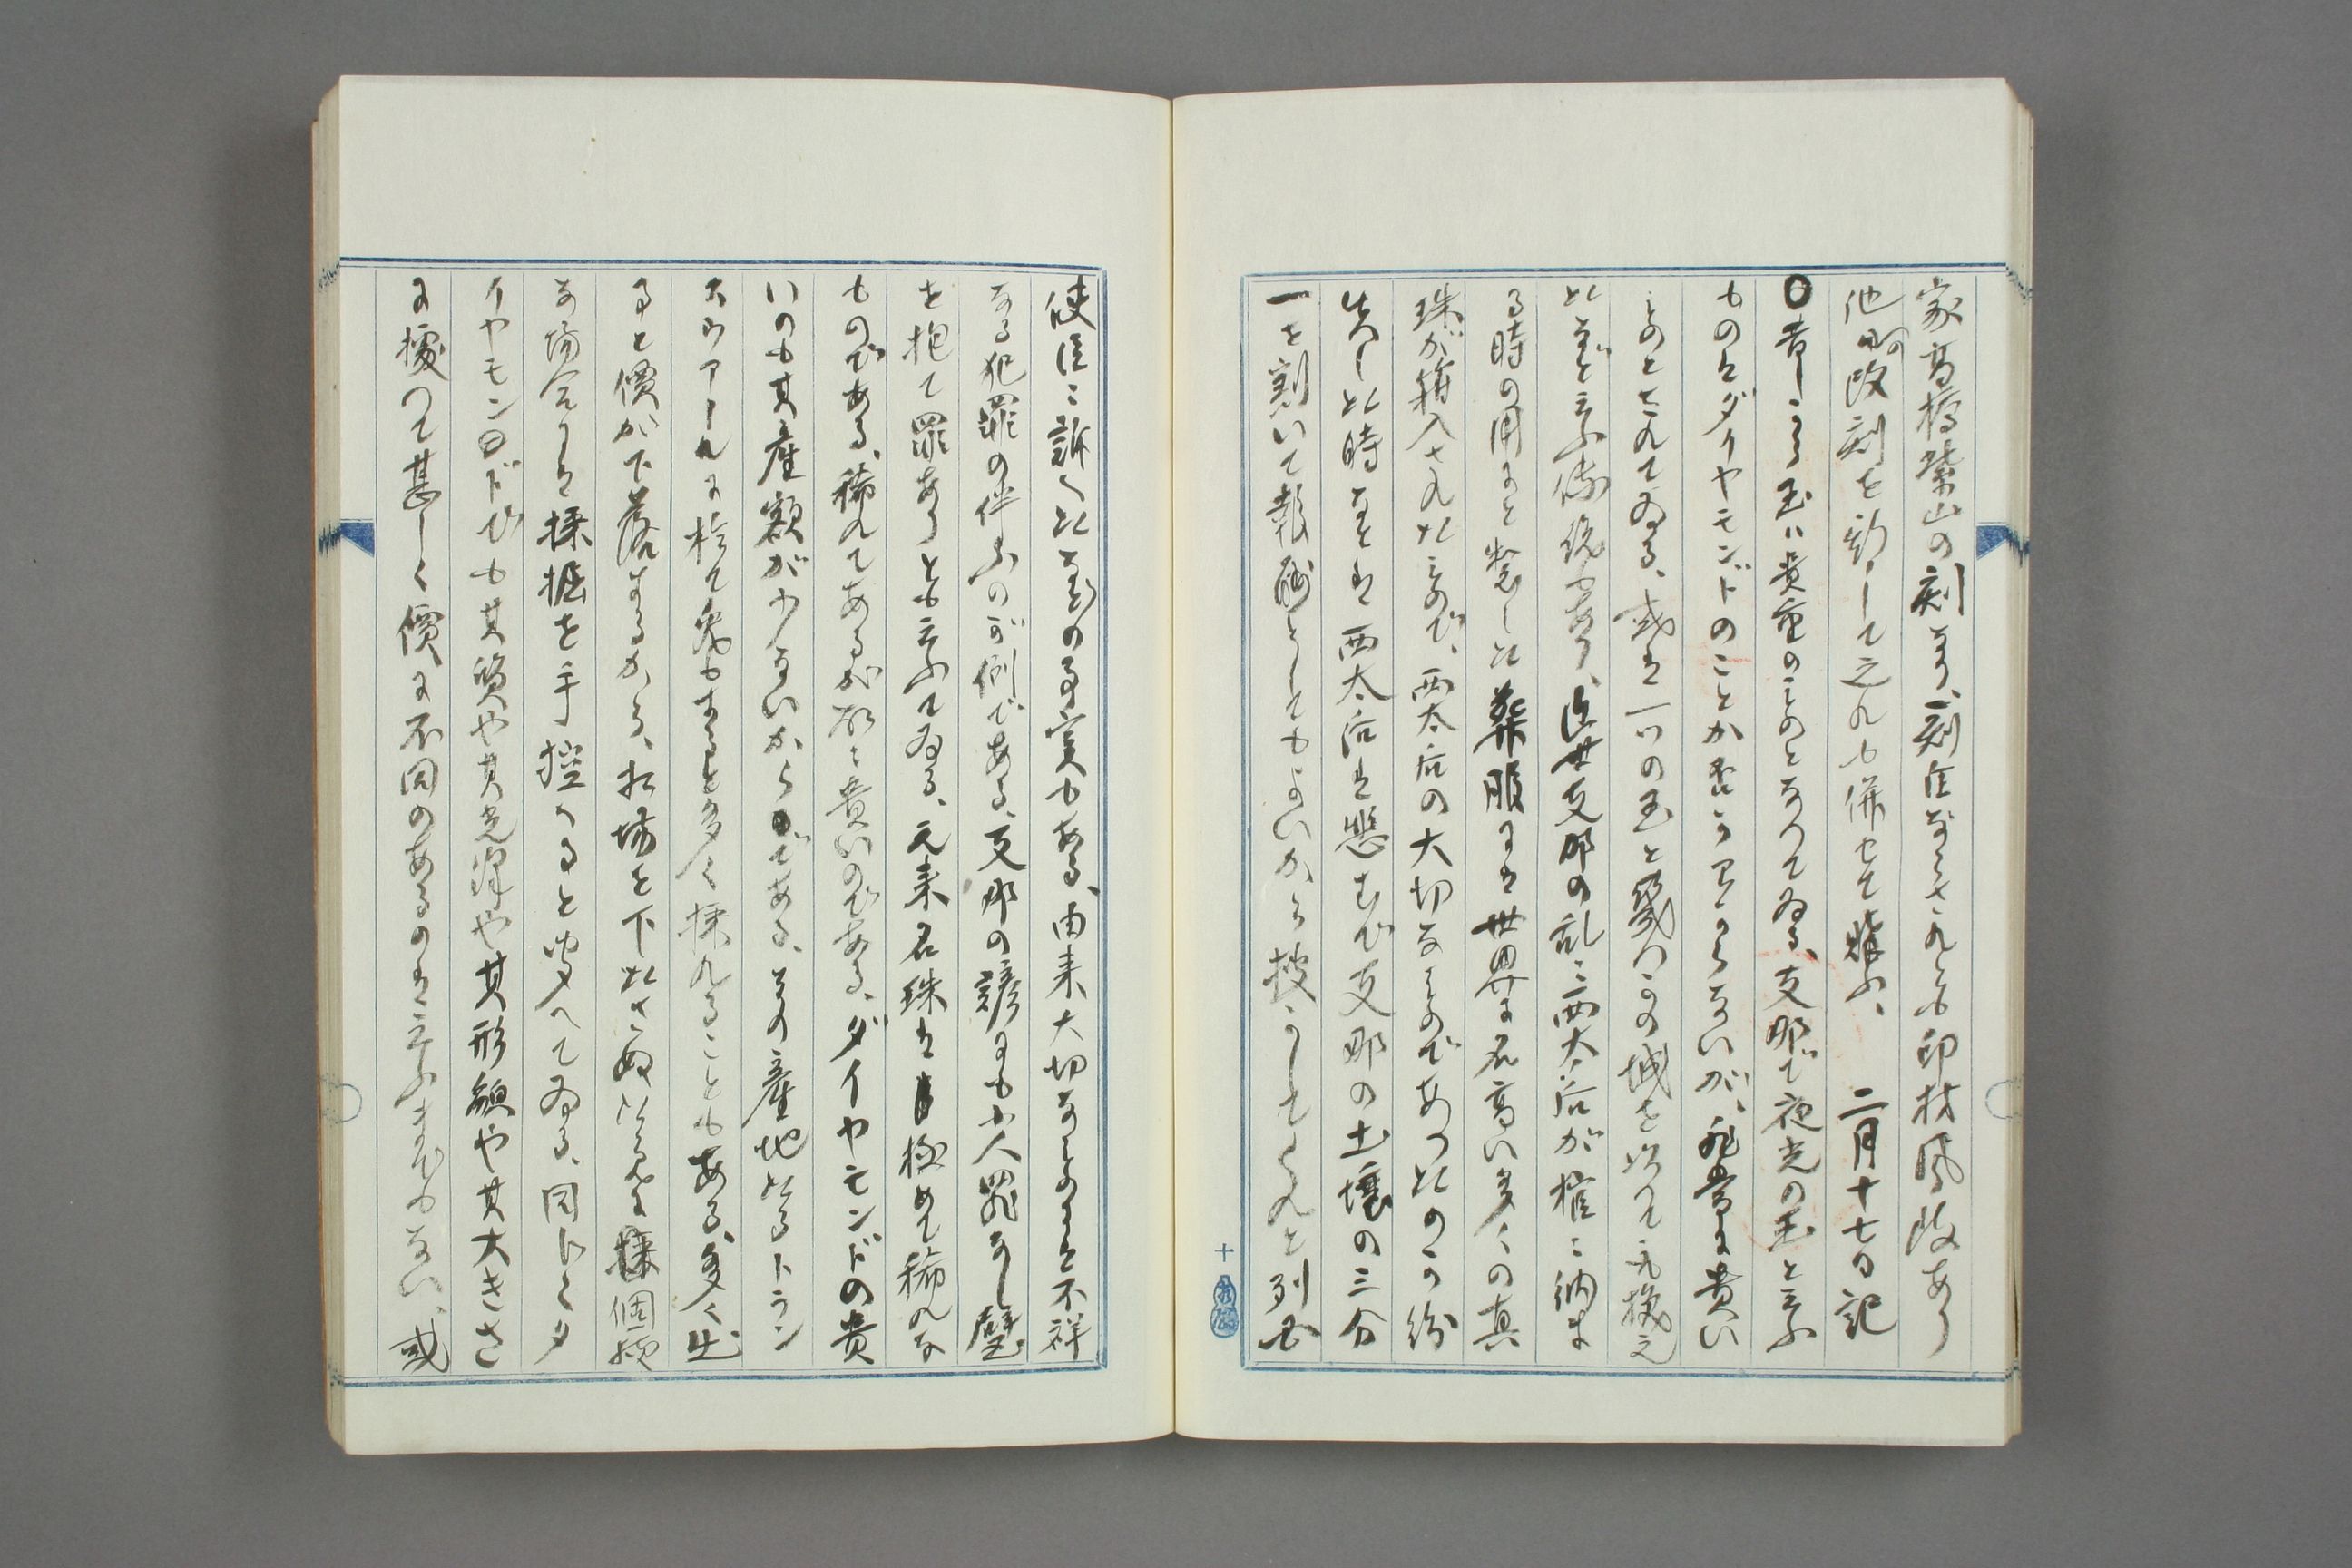 家高橋紫山の刻なり、刻佳ならされとも印材風致あり
他日改刻を期して之れも併せて購ふ、 二月十七日記
〇昔しから玉は貴重のものとなつてゐる、支那で夜光の玉と云ふ
ものはダイヤモンドのことか否か分からないが、非常に貴い
ものとされてゐる、或は一つの玉と幾つかの城を以つて交換し
たなどと云ふ伝説もあり、近世支那の乱に西太后が棺に納ま
る時の用にと製した葬服には世界に名高い多くの真
珠が縫入された もので、西太后の大切なものであつたのを紛
失した時などは西太后は悲むで支那の土壌の三分
一を割いて報酬としてもよいから捜かしてくれと列国
使臣に訴へたなどの事実もある、由来大切なものには不祥
なる犯罪の伴ふのが例である、支那の諺にも小人罪なし璧
を抱て罪ありとも云ふてゐる、元来名珠は極めて稀れな
ものである、稀れであるが故に貴いのである、ダイヤモンドの貴
いのも其産額が少ないからである、その産地たるトラン
スヴアールに於て発もすると多く採れることもある、多く出
ると価が下落するから、相場を下たさぬ為に採個
な場合には採掘を手控へると聞へてゐる、同じくダ
イヤモンドでも其質や其光沢や其形貌や其大きさ
に拠つて甚しく価に不同のあるのは云ふまでもない、或
十